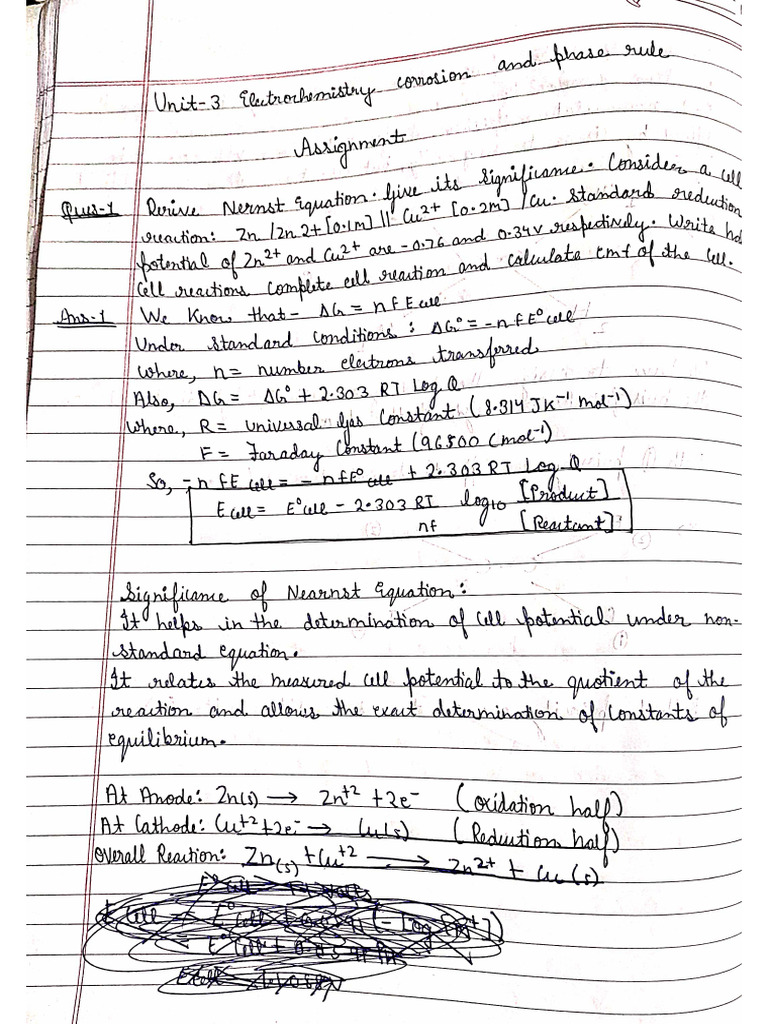 Unit-3 Electrochemistry corrosion and phase rule
Assignment
Ques-1 Derive Nernst Equation. Give its significance. Consider a cell
reaction: Zn/Zn2+[0.1M] || Cu2+ [0.2M] /Cu. Standard reduction
potential of Zn2+ and Cu2+ are -0.76 and 0.34V respectively. Write
Cell reactions complete cell reaction and calculate emf of the cell.
Ans-1 We Know that- ΔG = nfEcell
Under standard conditions: ΔG° = -nfE°cell
Where, n= number electrons transferred
Also, ΔG = ΔG° + 2.303 RT Log Q
Where, R = Universal Gas Constant (8.314 JK⁻¹ mol⁻¹)
F = Faraday Constant (96500 Cmol⁻¹)
So, -nfEcell = -nfE°cell + 2.303 RT Log Q
Ecell = E°cell - 2.303 RT log10 [Product]
nf [Reactant]
Significance of Nearnst Equation:
It helps in the determination of cell potential under non-
standard equation.
It relates the measured cell potential to the quotient of the
reaction and allows the exact determination of Constants of
equilibrium.
At Anode: Zn(s) → Zn+2 + 2e- (oxidation half)
At Cathode: Cu+2 + 2e- → Cu(s) (Reduction half)
Overall Reaction: Zn(s) + Cu+2 → Zn2+ + Cu(s)